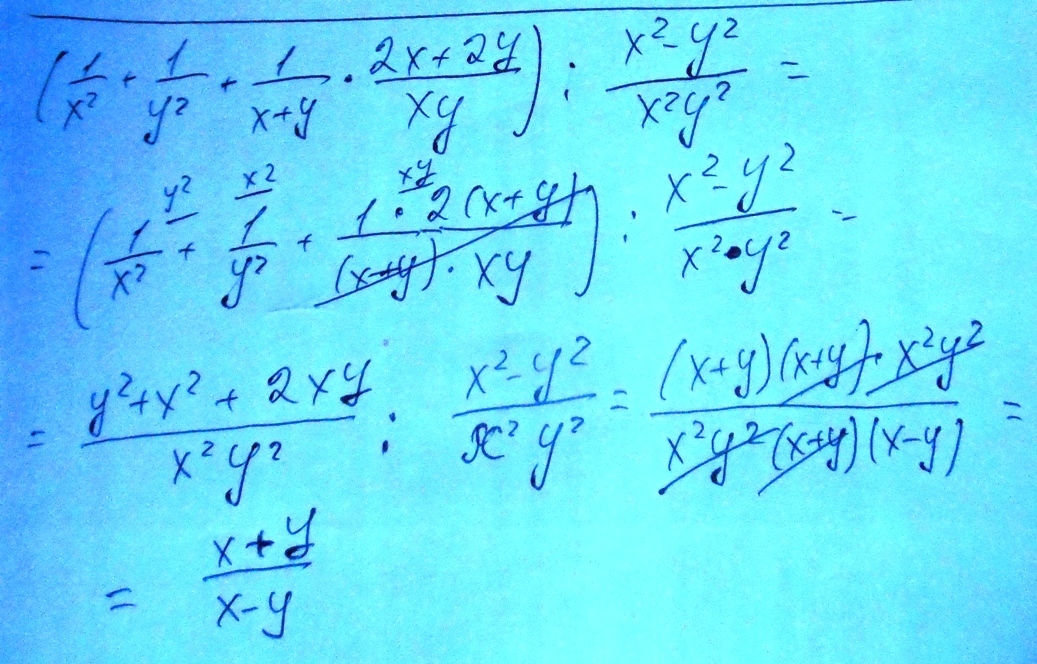 (1/x² + 1/y² + 1/(x+y) · (2x+2y)/(xy)) : (x²-y²)/(x²y²) =
= (1/x² (y²) + 1/y² (x²) + (1·2(x+y))/((x+y)·xy) (xy)) : (x²-y²)/(x²·y²) =
= (y²+x²+2xy)/(x²y²) : (x²-y²)/(x²y²) = ((x+y)(x+y)·x²y²)/(x²y²(x+y)(x-y)) =
= (x+y)/(x-y)